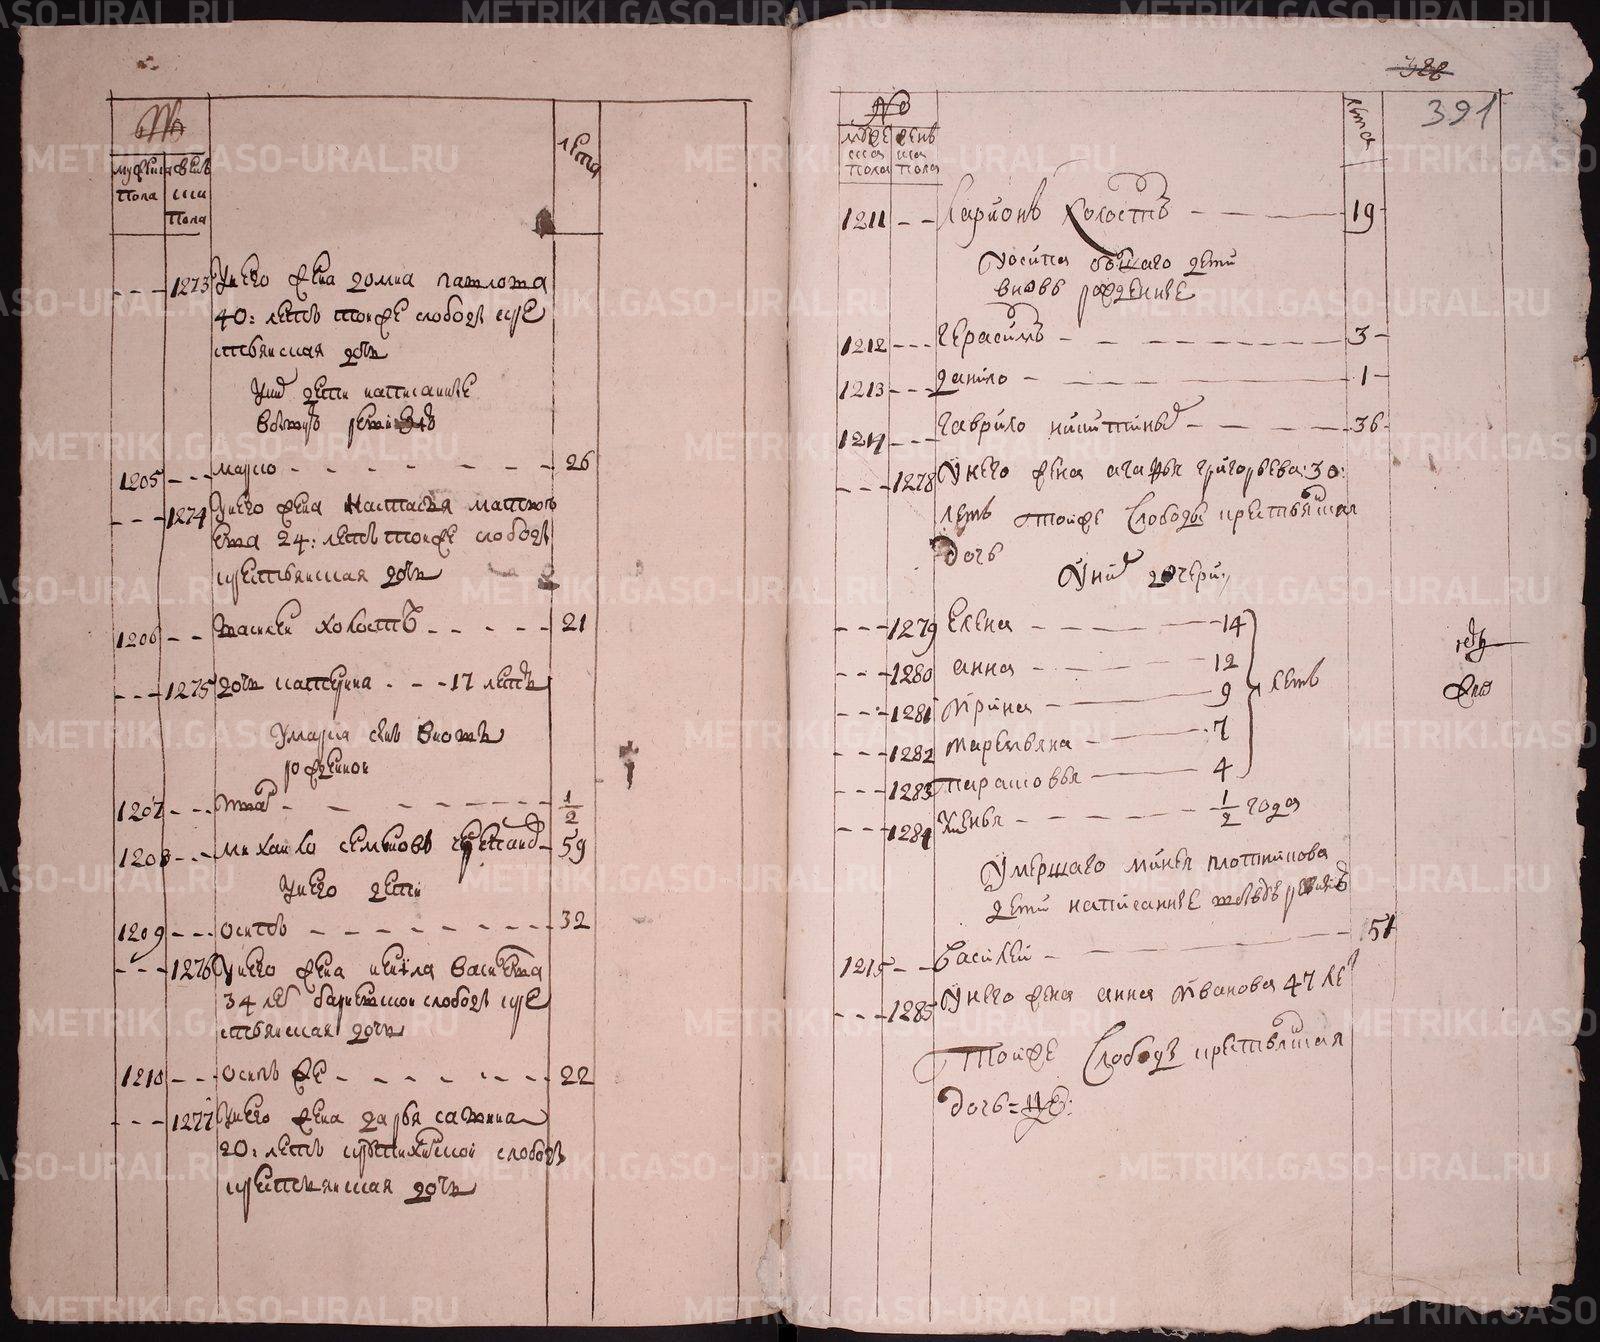 №
мужеска пола
женска пола
лета
1273 У него жена домна павлова
40: летъ тоиже слободы кре
стьянская дочь
У них дети написанные
в
1205 марко 26
1274 У него жена настасья матвѣ
ева 24: летъ тоиже слободы
крестьянская дочь
1206 василеи холостъ 21
1275 дочь катерина 17 летъ
У марка сынъ вновь
рожденнои
1207 1/2
1208 михаило семеновъ 59
У него дети
1209 осипъ 32
1276 У него жена василева
34 ле слободы кре
стьянская дочь
1210 осипъ же 22
1277 У него жена дарья савина
20: летъ слободы
крестьянская дочь
388
391
№
мужеска пола
женска пола
лета
1211 Ларионъ холостъ 19
Осипа большаго дети
вновь рожденные
1212 Герасимъ 3
1213 данило 1
1214 Гаврило никитинъ 36
1278 У него жена агафья григорьева: 30:
летъ тоиже слободы крестьянская
дочь
У них дочери
1279 Елена 14
1280 анна 12
1281 Ирина 9
летъ
1282 маремьяна 7
1283 парасковья 4
1284 1/2 года
Умершаго плотникова
дети написанные
1215 Василеи 51
1285 У него жена анна Иванова 47 ле
тоиже слободы крестьянская
дочь